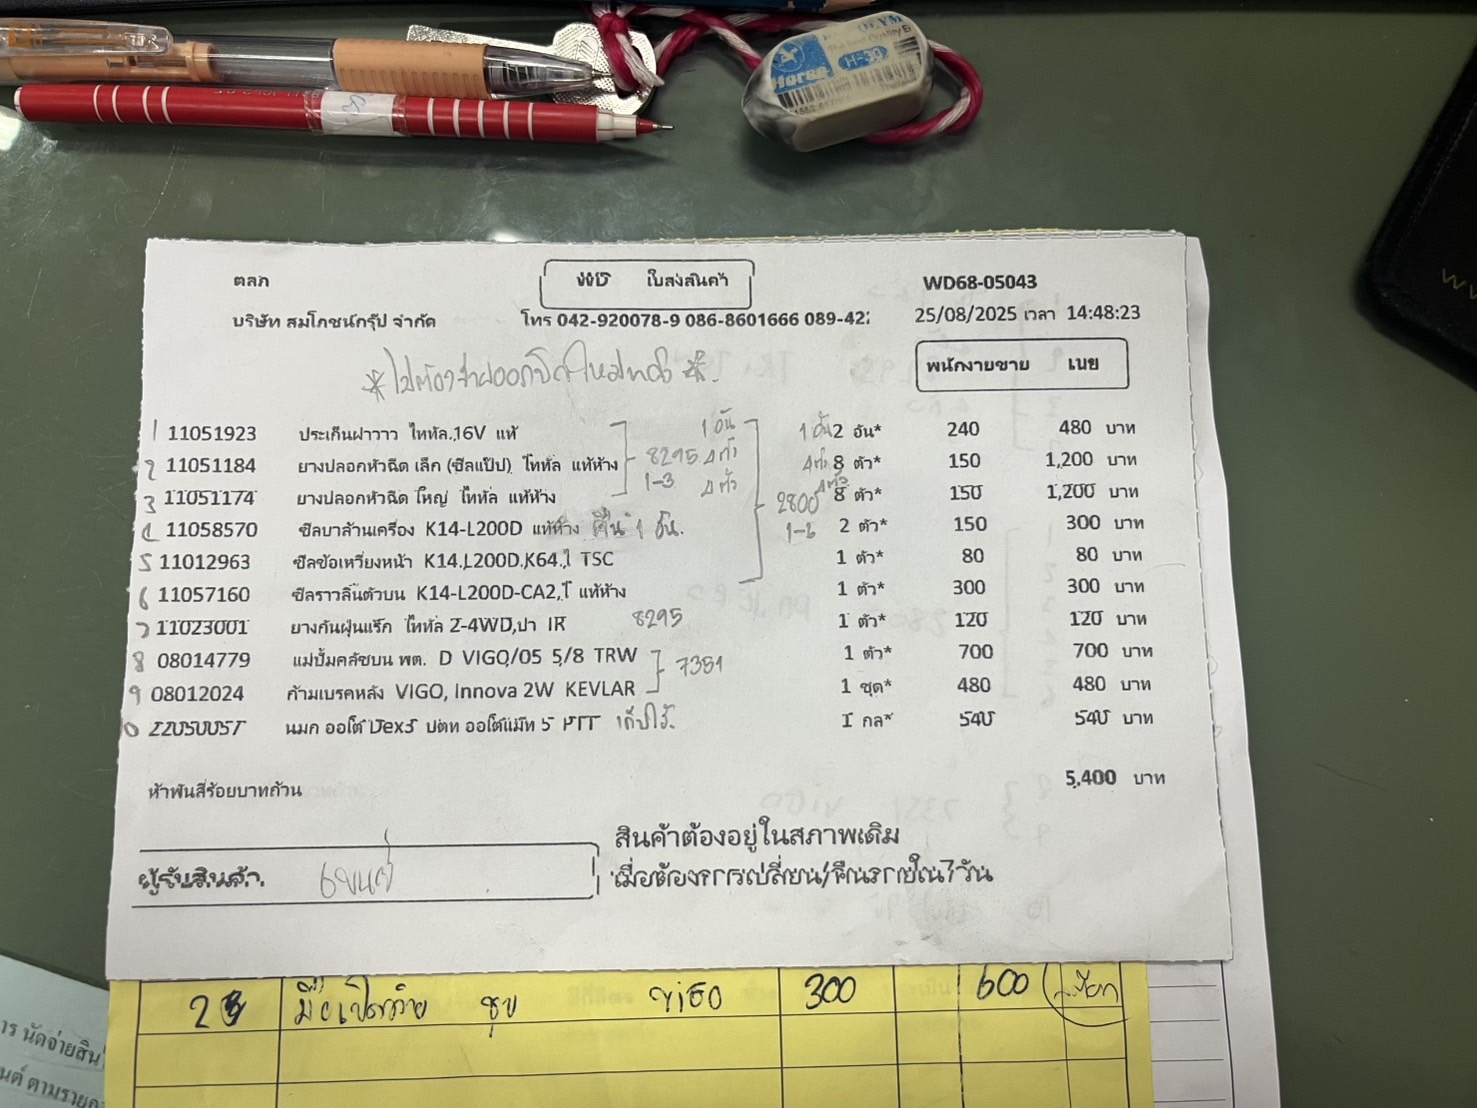 Horse
H-30
ตลภ WD ใบส่งสินค้า WD68-05043
บริษัท สมโภชน์กรุ๊ป จำกัด โทร 042-920078-9 086-8601666 089-422 25/08/2025 เวลา 14:48:23
พนักงายขาย เนย
1 11051923 ประเก็นฝาวาว ไททัล.16V แท้ 1 อัน 1 อัน 2 อัน* 240 480 บาท
2 11051184 ยางปลอกหัวฉีด เล็ก (ซีลแป๊ป) ไททัล แท้ห้าง 8295 4 ตัว 4 ตัว 8 ตัว* 150 1,200 บาท
3 11051174 ยางปลอกหัวฉีด ใหญ่ ไททัล แท้ห้าง 1-3 4 ตัว 4 ตัว 8 ตัว* 150 1,200 บาท
2800
4 11058570 ซีลบาล้านเครื่อง K14-L200D แท้ห้าง คืน 1 อัน. 1-6 2 ตัว* 150 300 บาท
5 11012963 ซีลข้อเหวี่ยงหน้า K14.L200D.K64.1 TSC 1 ตัว* 80 80 บาท
6 11057160 ซีลราวลิ้นตัวบน K14-L200D-CA2,T แท้ห้าง 1 ตัว* 300 300 บาท
7 11023001 ยางกันฝุ่นแร๊ก ไททัล 2-4WD,ปา IR 8295 1 ตัว* 120 120 บาท
8 08014779 แม่ปั้มคลัชบน พต. D VIGO/05 5/8 TRW 7351 1 ตัว* 700 700 บาท
9 08012024 ก้ามเบรคหลัง VIGO, Innova 2W KEVLAR 1 ชุด* 480 480 บาท
10 22050057 นมก ออโต้ Dex3 ปตท ออโต้แม๊ท 5 PTT เก็บไว้ 1 กล* 540 540 บาท
ห้าพันสี่ร้อยบาทถ้วน 5,400 บาท
สินค้าต้องอยู่ในสภาพเดิม
ผู้รับสินค้า เมื่อต้องการเปลี่ยน/คืนภายใน7วัน
มือเปิดท้าย ชุบ VIGO 300 600
าร นัดจ่ายสิน
นต์ ตามราย